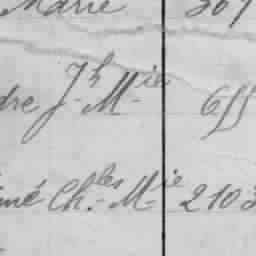 Marie 307
dre Jh Mie 655
mé Chles Mie 2103